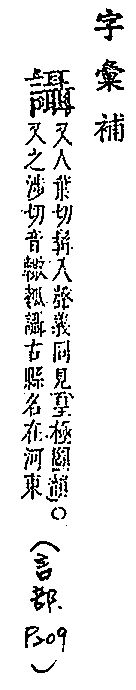 字彙補
讘
又人葉切音入聲義同見皇極圖韻○
又之涉切音輒狐讘古縣名在河東
(言部.
P209)